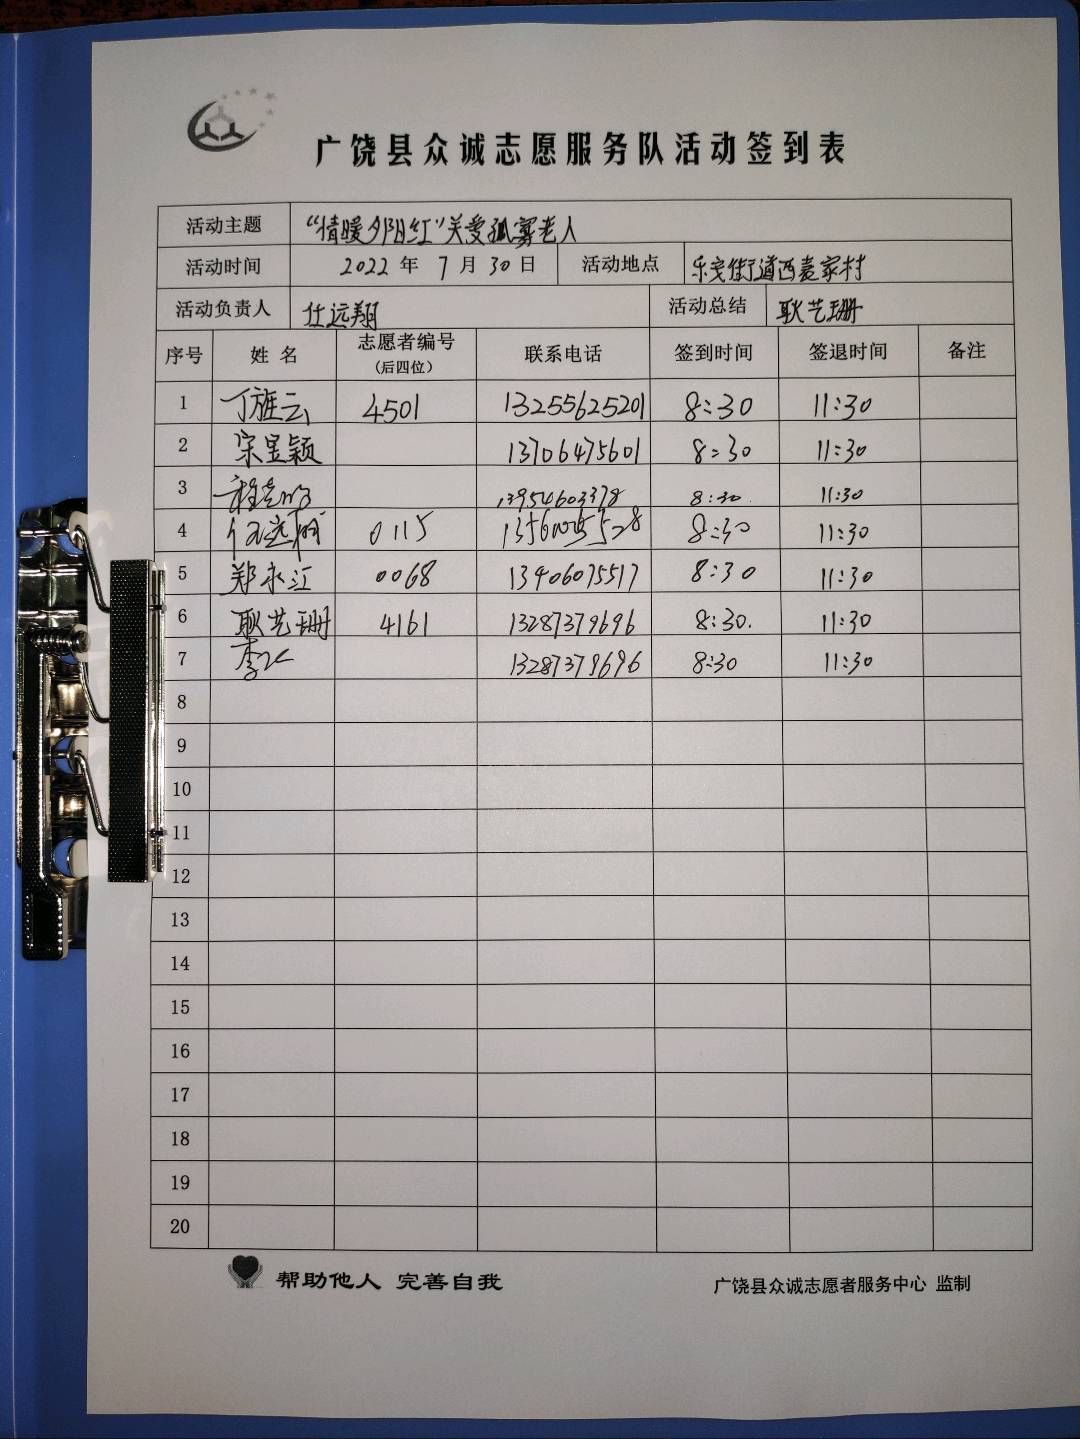 广饶县众诚志愿服务队活动签到表
活动主题 “情暖夕阳红”关爱孤寡老人
活动时间 2022 年 7 月 30 日 活动地点 乐安街道西袁家村
活动负责人 任远翔 活动总结 耿艺珊
序号 姓名 志愿者编号 联系电话 签到时间 签退时间 备注
(后四位)
1 丁旌云 4501 13255625201 8:30 11:30
2 宋昱颖 13706475601 8:30 11:30
3 13954603378 8:30 11:30
4 任远翔 0115 8:30 11:30
5 郑永江 0068 13406075517 8:30 11:30
6 耿艺珊 4161 13287379696 8:30. 11:30
7 李 13287379696 8:30 11:30
8
9
10
11
12
13
14
15
16
17
18
19
20
帮助他人 完善自我
广饶县众诚志愿者服务中心 监制